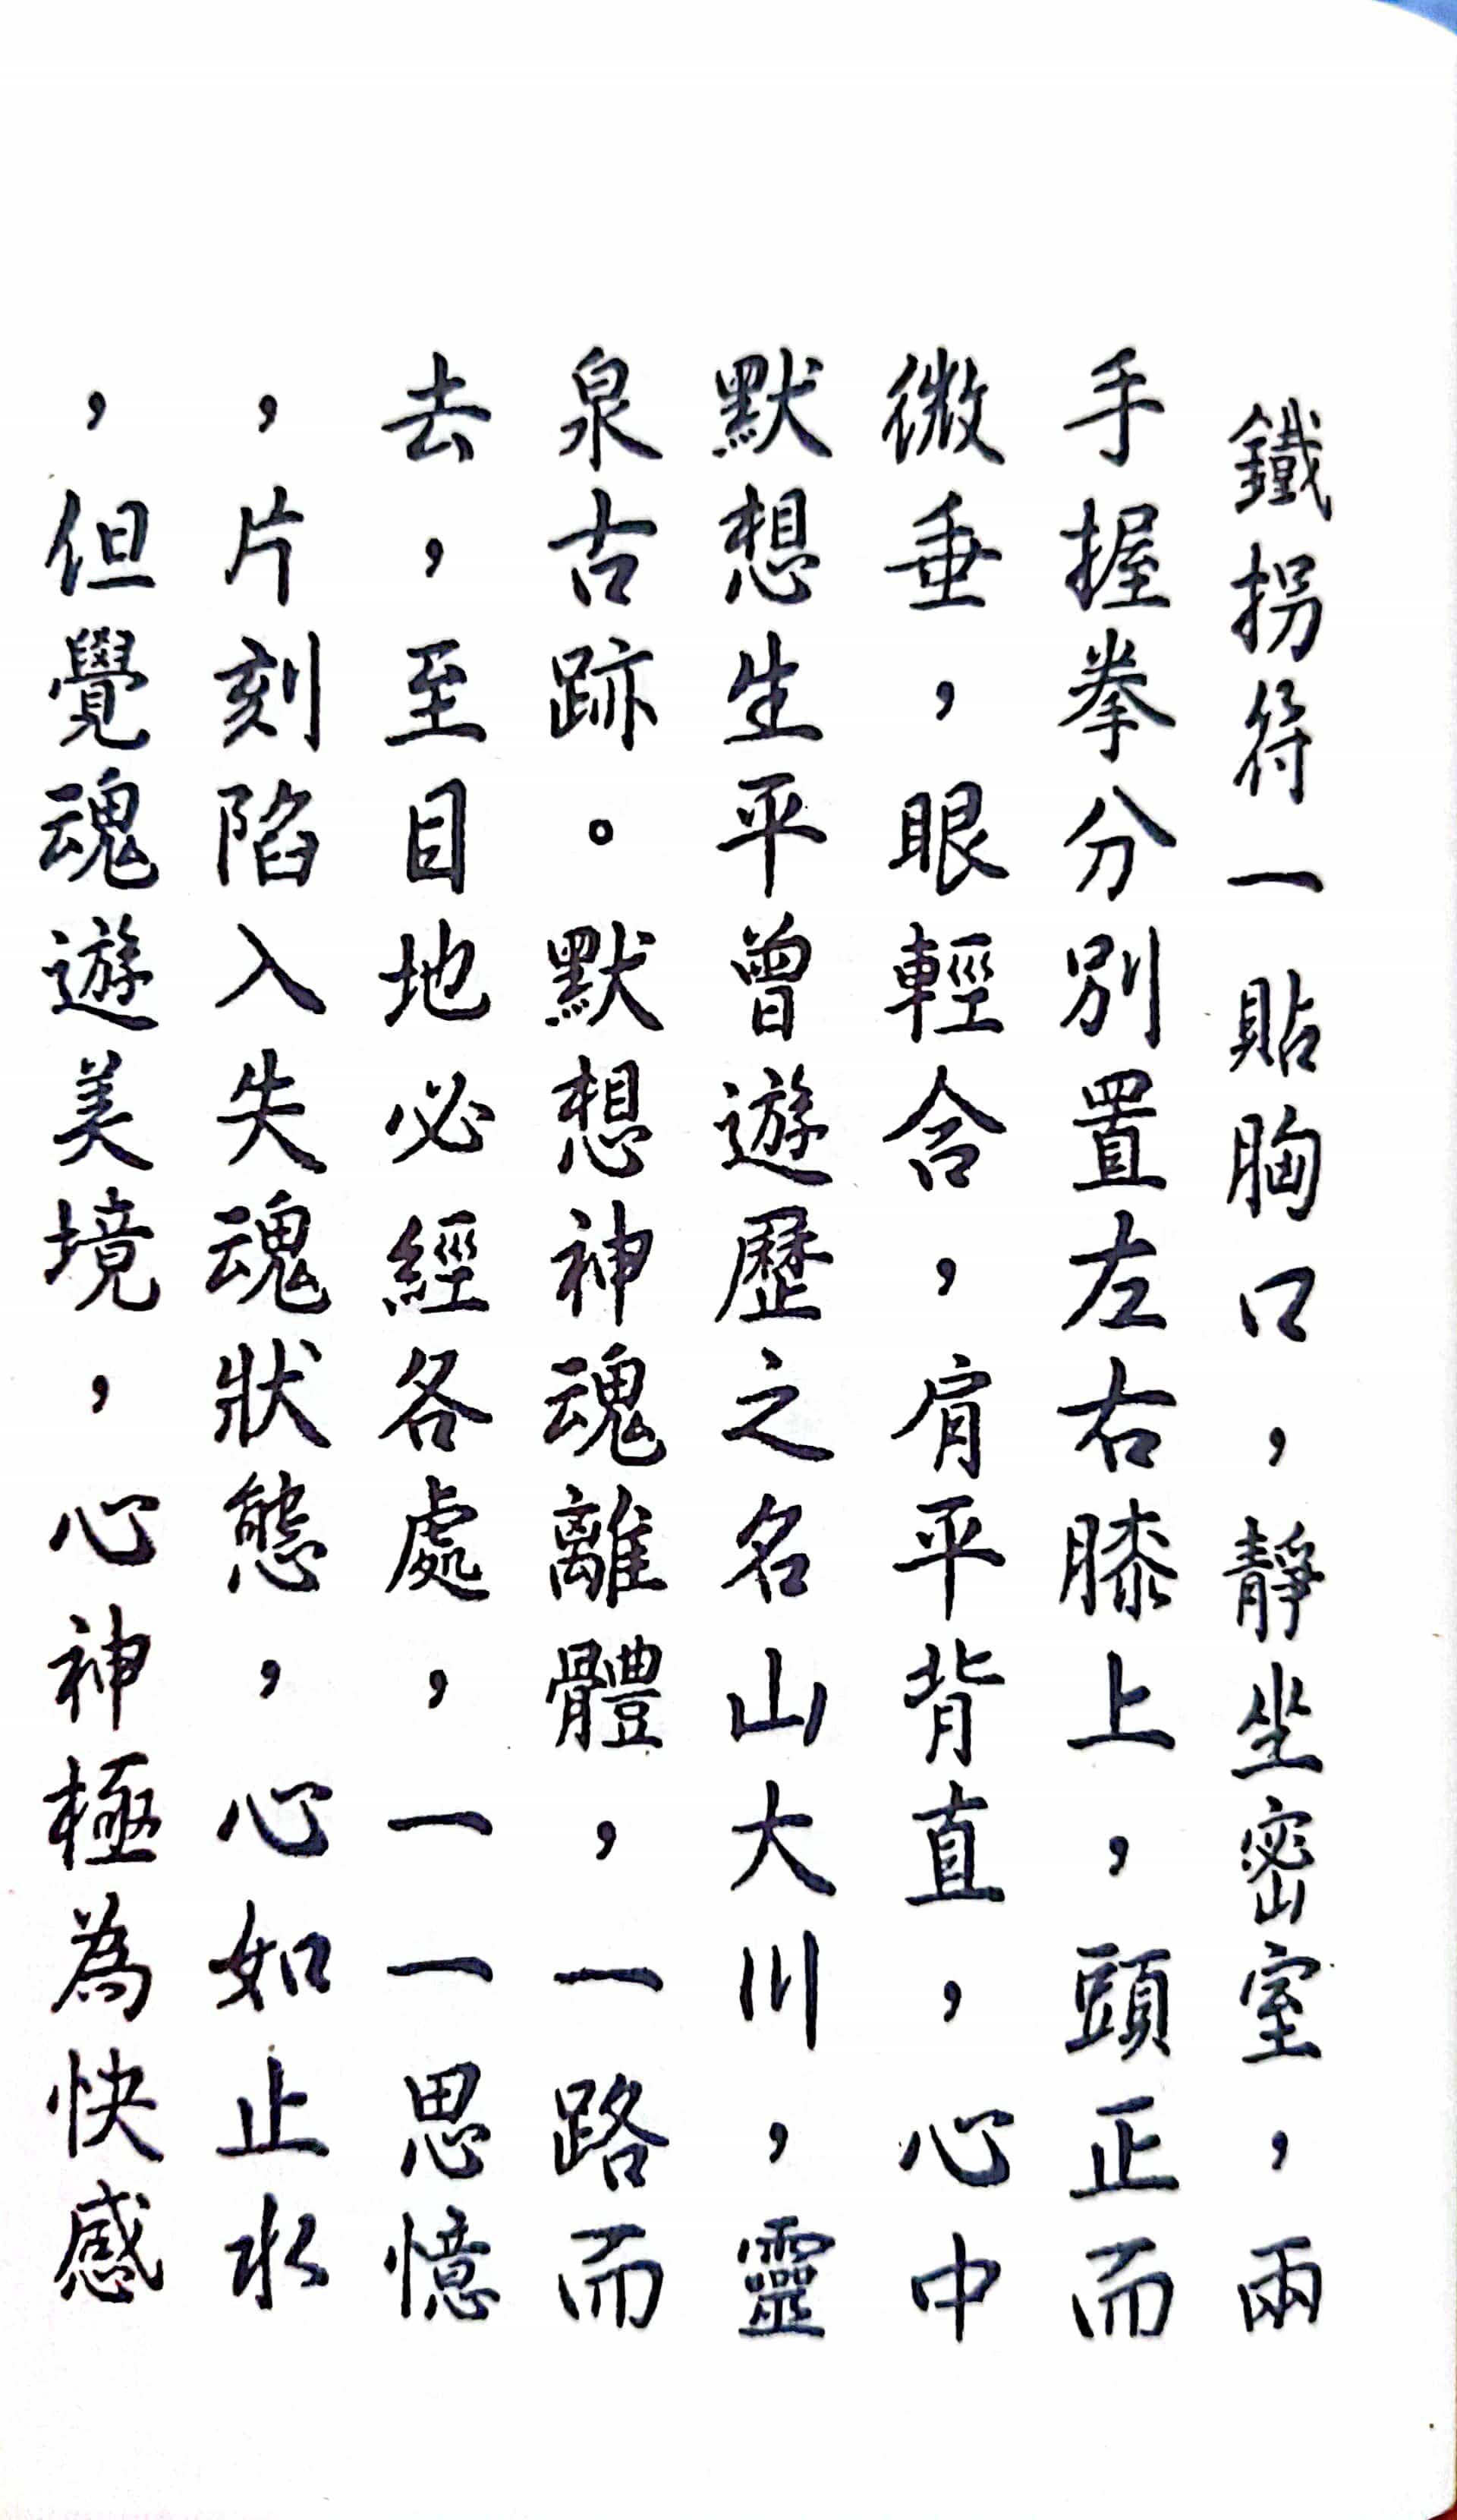 鐵拐符一貼胸口，靜坐密室，兩
手握拳分別置左右膝上，頭正而
微垂，眼輕含，肩平背直，心中
默想生平曾遊歷之名山大川，靈
泉古跡。默想神魂離體，一路而
去，至目地必經各處，一一思憶
，片刻陷入失魂狀態，心如止水
，但覺魂遊美境，心神極為快感